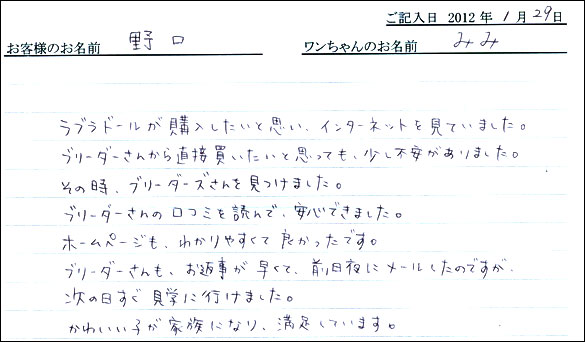 ご記入日 2012 年 1 月 29 日
お客様のお名前 野口 ワンちゃんのお名前 みみ
ラブラドールが購入したいと思い、インターネットを見ていました。
ブリーダーさんから直接買いたいと思っても、少し不安がありました。
その時、ブリーダーズさんを見つけました。
ブリーダーさんの口コミを読んで、安心できました。
ホームページも、わかりやすくて良かったです。
ブリーダーさんも、お返事が早くて、前日夜にメールしたのですが、
次の日すぐ見学に行けました。
かわいい子が家族になり、満足しています。